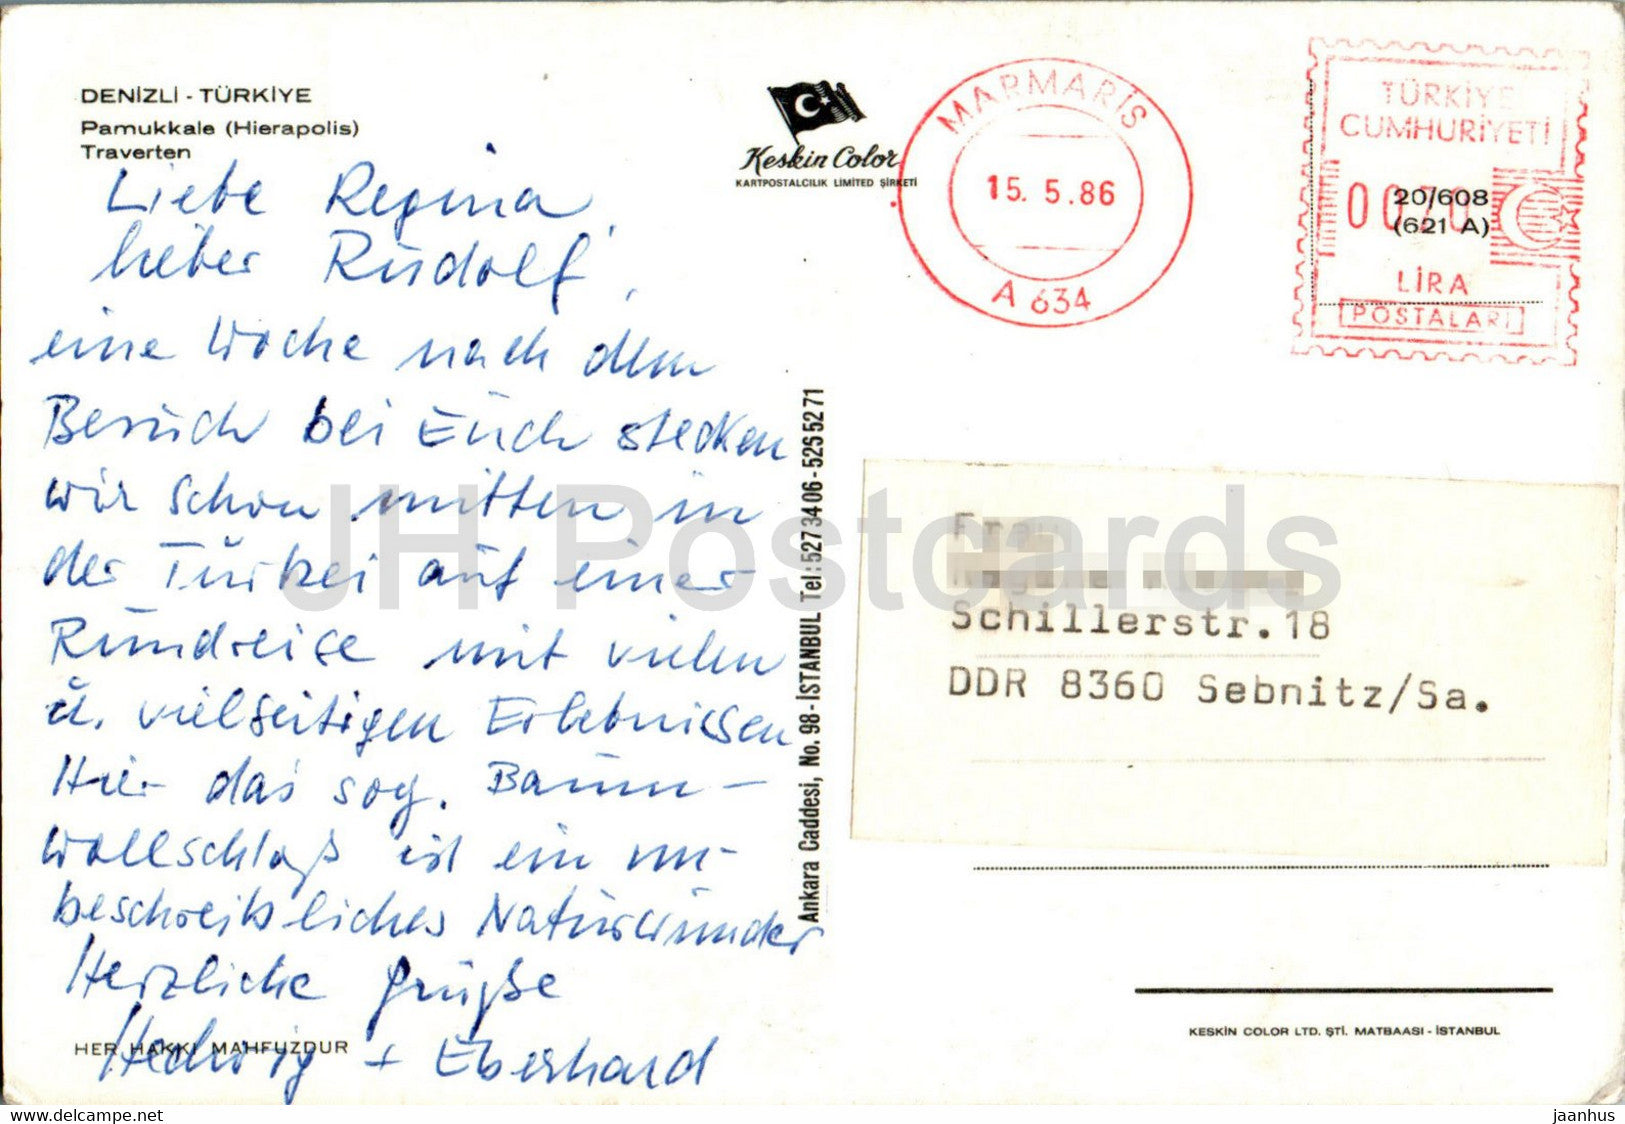 DENİZLİ - TÜRKİYE
Pamukkale (Hierapolis)
Traverten
Keskin Color
KARTPOSTALCILIK LIMITED ŞİRKETİ
MARMARİS
15. 5.86
A 634
TÜRKİYE
CUMHURİYETİ
0070
20/608
(621 A)
LİRA
POSTALARI
Liebe Regina,
lieber Rudolf,
eine Woche nach dem
Besuch bei Euch stecken
wir schon mitten in
der Türkei auf einer
Rundreise mit vielen
u. vielseitigen Erlebnissen
Hier das sog. Baum-
wollschloß ist ein un-
beschreibliches Naturwunder
Herzliche Grüße
Hedwig + Eberhard
HER HAKKI MAHFUZDUR
Ankara Caddesi, No. 98 - İSTANBUL Tel: 527 34 06 - 525 52 71
Frau
Schillerstr.18
DDR 8360 Sebnitz/Sa.
KESKIN COLOR LTD. ŞTİ. MATBAASI - İSTANBUL
JH Postcards
https://www.delcampe.net
jaanhus